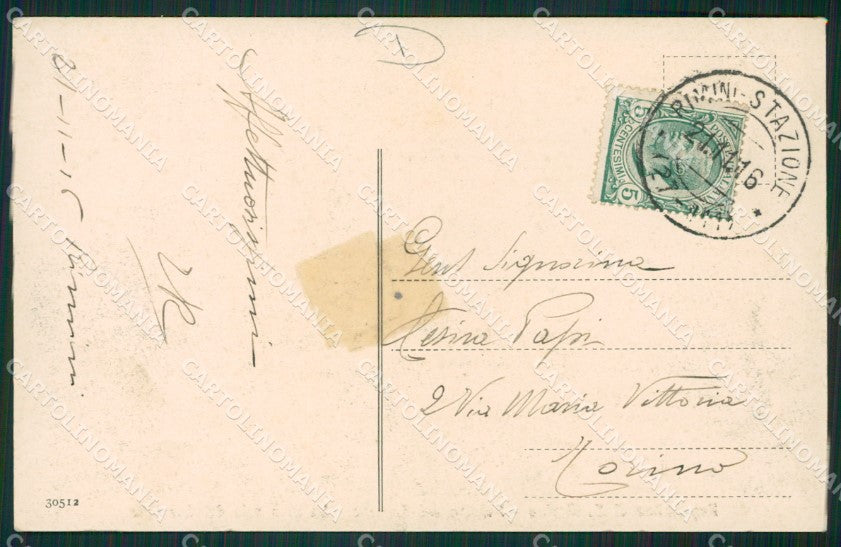 21-11-16 Rimini
Affettuosissimi
30512
Gent Signorina
Papi
2 Via Maria Vittoria
Torino
RIMINI-STAZIONE
21.11.16
POSTE ITALIANE
CENTESIMI
5 5
CARTOLINOMANIA